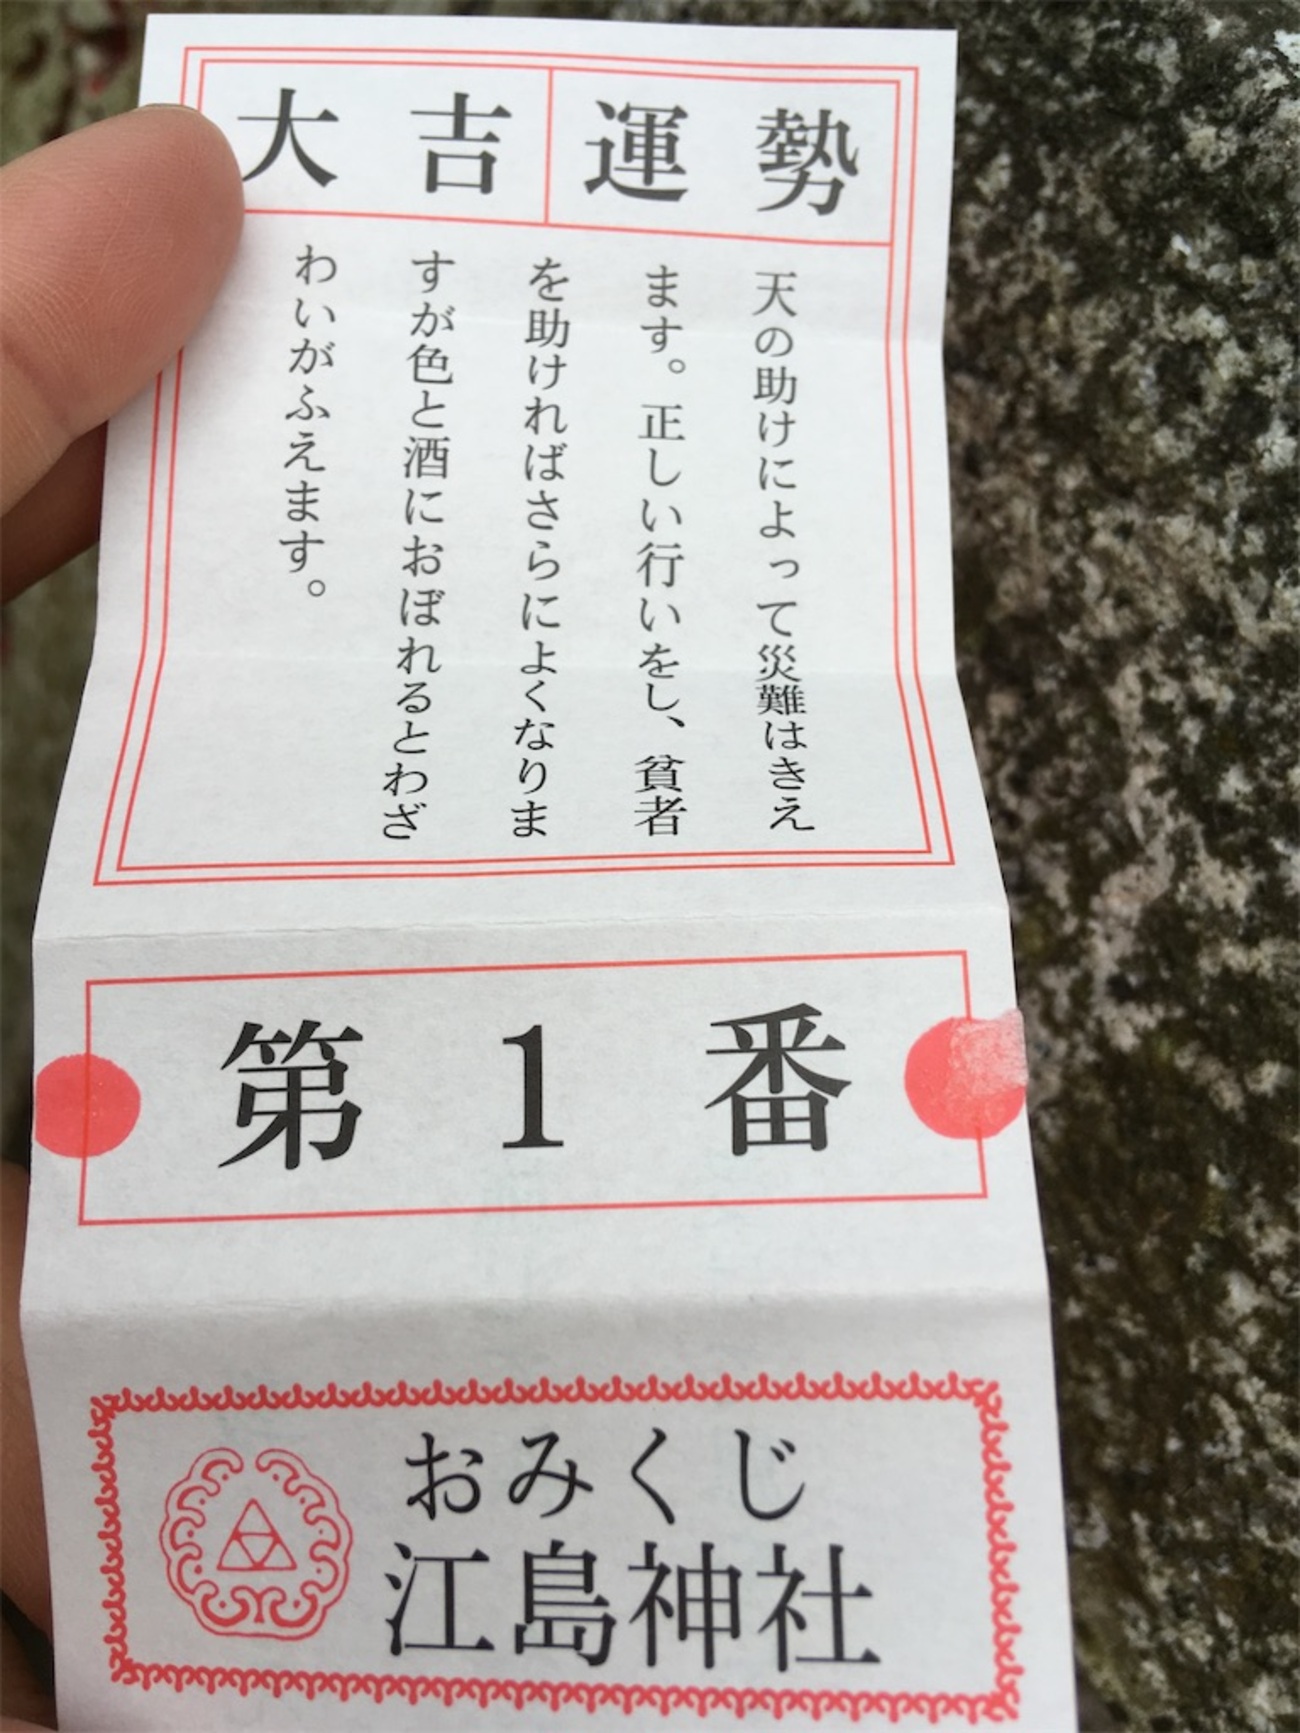 大吉 運勢
天の助けによって災難はきえ
ます。正しい行いをし、貧者
を助ければさらによくなりま
すが色と酒におぼれるとわざ
わいがふえます。
第1番
おみくじ
江島神社